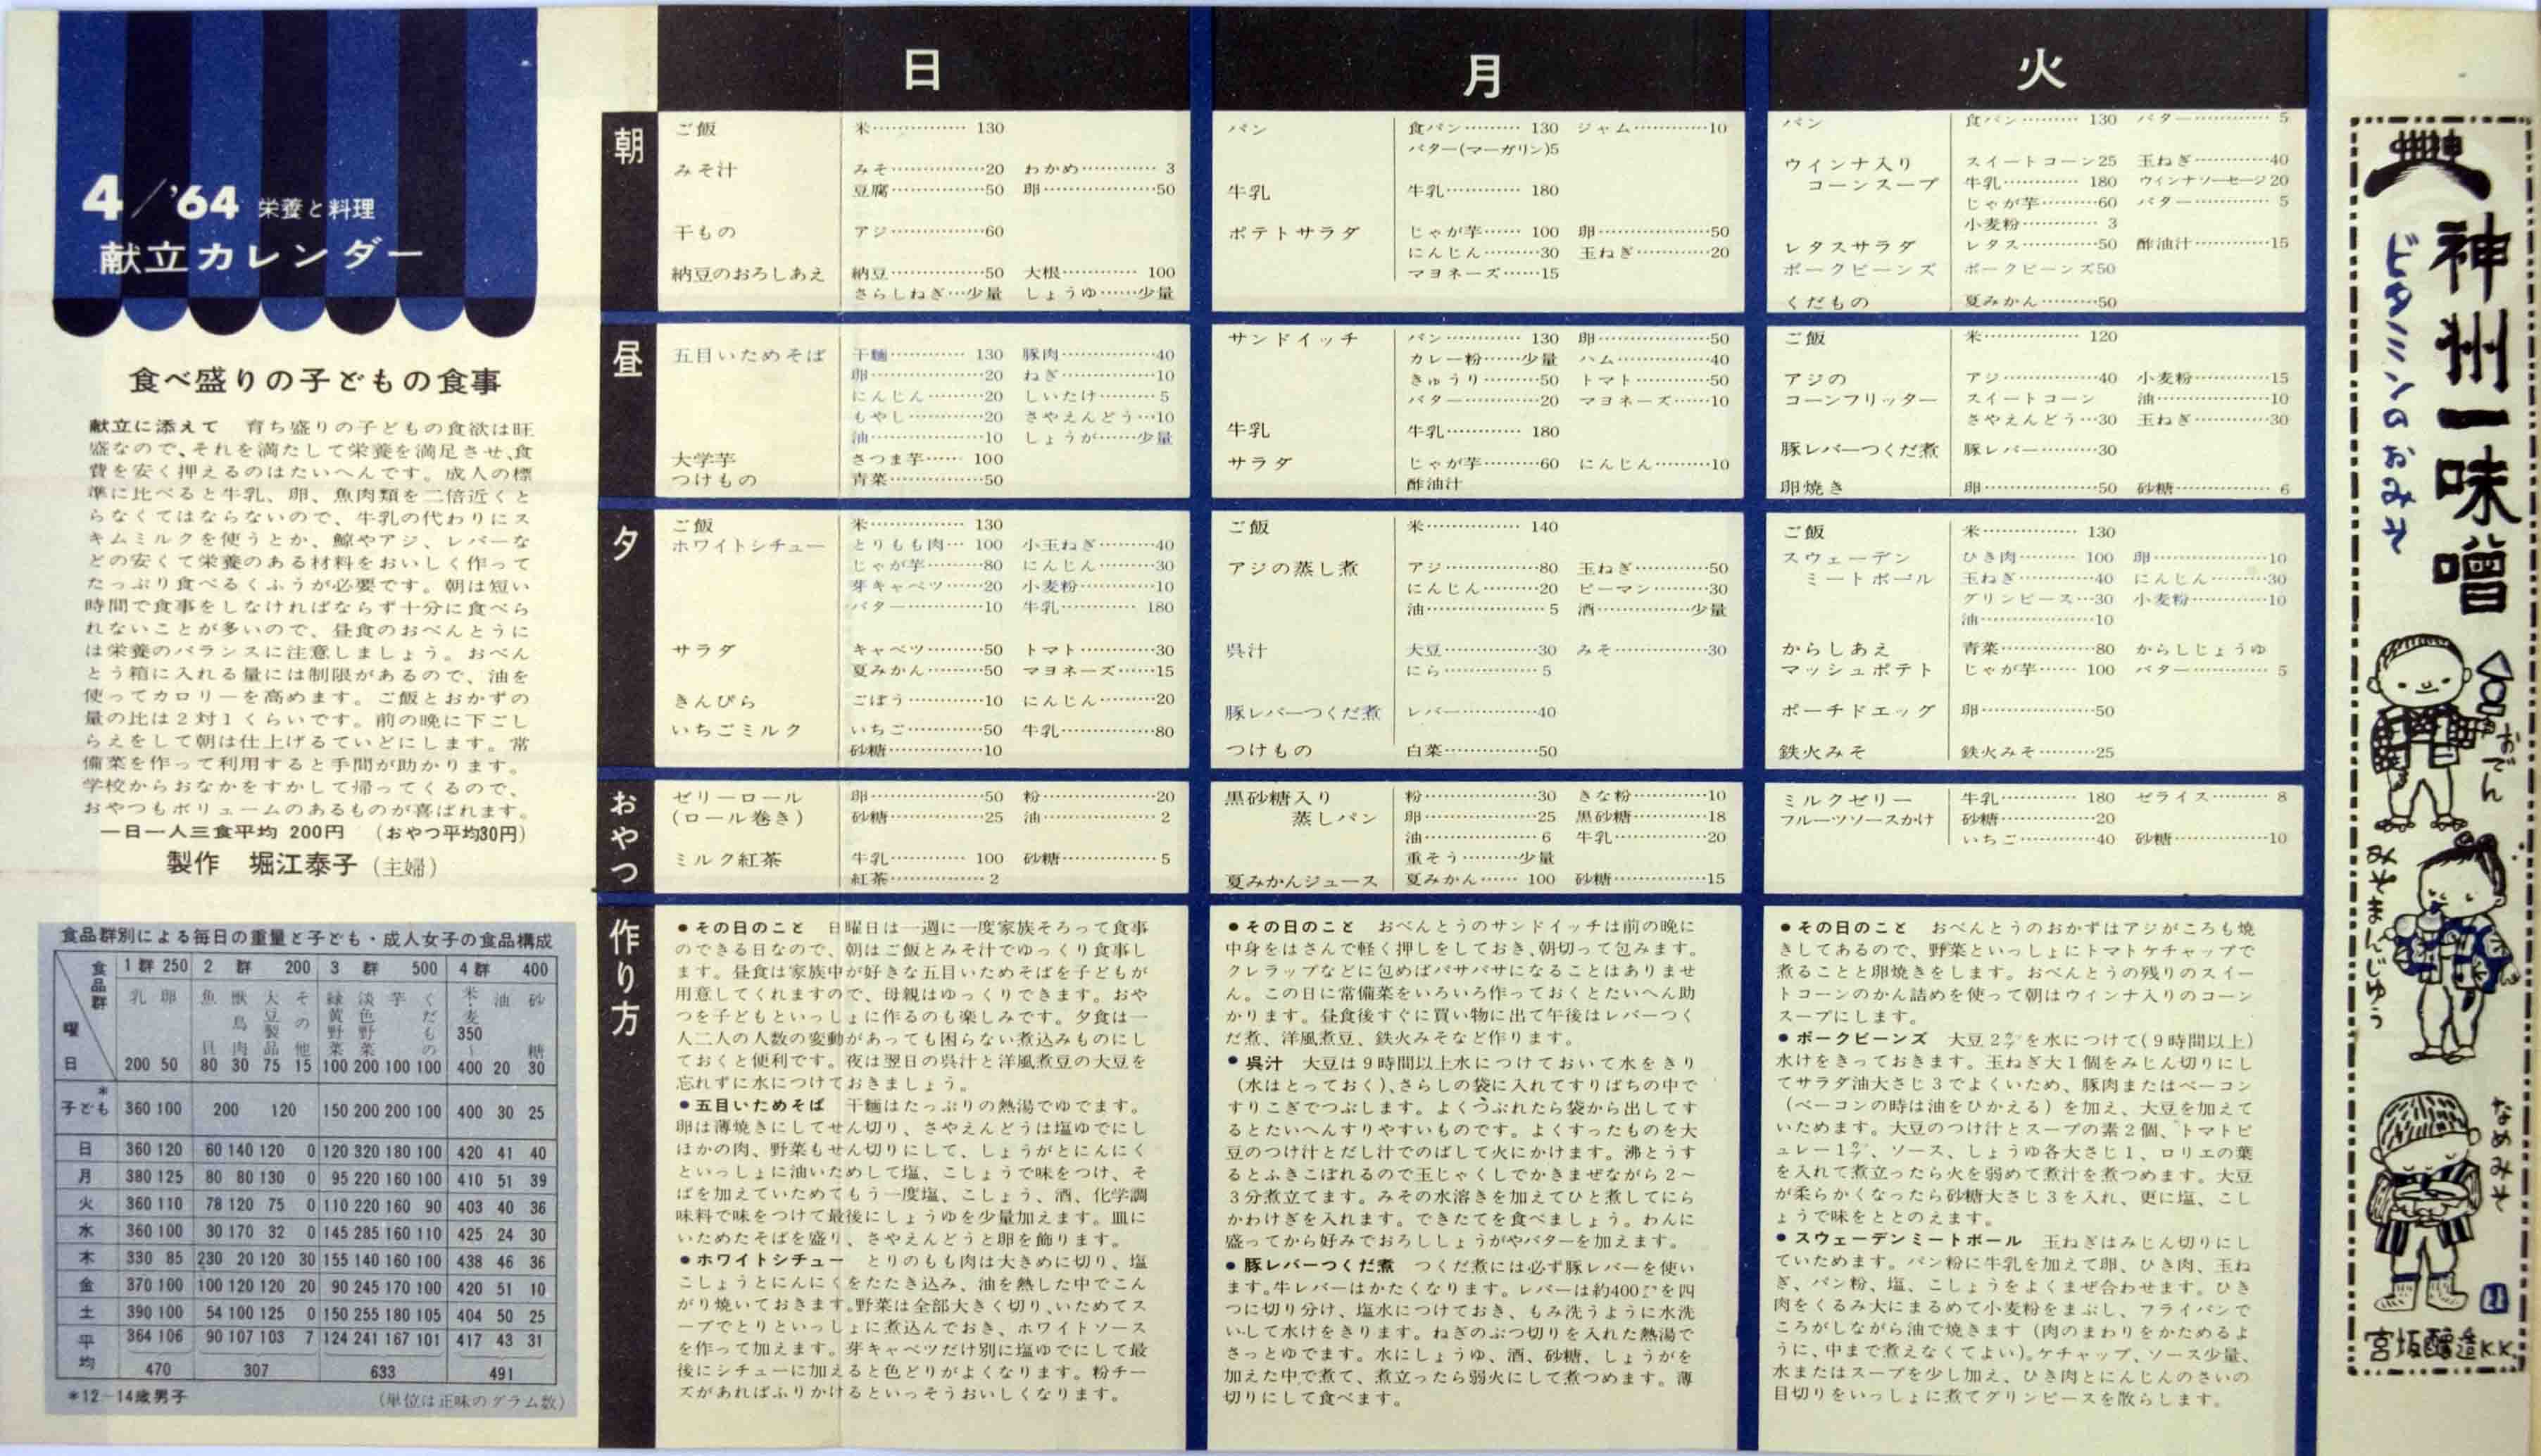 4/'64 栄養と料理
献立カレンダー
食べ盛りの子どもの食事
献立に添えて　育ち盛りの子どもの食欲は旺
盛なので、それを満たして栄養を満足させ、食
費を安く押えるのはたいへんです。成人の標
準に比べると牛乳、卵、魚肉類を二倍近くと
らなくてはならないので、牛乳の代わりにス
キムミルクを使うとか、鯨やアジ、レバーな
どの安くて栄養のある材料をおいしく作って
たっぷり食べるくふうが必要です。朝は短い
時間で食事をしなければならず十分に食べら
れないことが多いので、昼食のおべんとうに
は栄養のバランスに注意しましょう。おべん
とう箱に入れる量には制限があるので、油を
使ってカロリーを高めます。ご飯とおかずの
量の比は2対1くらいです。前の晩に下ごし
らえをして朝は仕上げるていどにします。常
備菜を作って利用すると手間が助かります。
学校からおなかをすかして帰ってくるので、
おやつもボリュームのあるものが喜ばれます。
一日一人三食平均 200円　(おやつ平均30円)
製作　堀江泰子 (主婦)
食品群別による毎日の重量と子ども・成人女子の食品構成
食品群 1群 250 2群 200 3群 500 4群 400
曜日 乳 卵 魚貝 獣鳥肉 大豆製品 その他 緑黄野菜 淡色野菜 芋 くだもの 米・麦 油 砂糖
200 50 80 30 75 15 100 200 100 100 350～400 20 30
*子ども 360 100 200 120 150 200 200 100 400 30 25
日 360 120 60 140 120 0 120 320 180 100 420 41 40
月 380 125 80 80 130 0 95 220 160 100 410 51 39
火 360 110 78 120 75 0 110 220 160 90 403 40 36
水 360 100 30 170 32 0 145 285 160 110 425 24 30
木 330 85 230 20 120 30 155 140 160 100 438 46 36
金 370 100 100 120 120 20 90 245 170 100 420 51 10
土 390 100 54 100 125 0 150 255 180 105 404 50 25
平均 364 106 90 107 103 7 124 241 167 101 417 43 31
470 307 633 491
*12－14歳男子　(単位は正味のグラム数)
日
朝
ご飯 米…………… 130
みそ汁 みそ……………20 わかめ………… 3
豆腐……………50 卵………………50
干もの アジ……………60
納豆のおろしあえ 納豆……………50 大根………… 100
さらしねぎ…少量 しょうゆ……少量
昼
五目いためそば 干麺………… 130 豚肉……………40
卵………………20 ねぎ……………10
にんじん………20 しいたけ……… 5
もやし…………20 さやえんどう…10
油………………10 しょうが……少量
大学芋 さつま芋…… 100
つけもの 青菜……………50
夕
ご飯 米…………… 130
ホワイトシチュー とりもも肉… 100 小玉ねぎ………40
じゃが芋………80 にんじん………30
芽キャベツ……20 小麦粉…………10
バター…………10 牛乳………… 180
サラダ キャベツ………50 トマト…………30
夏みかん………50 マヨネーズ……15
きんぴら ごぼう…………10 にんじん………20
いちごミルク いちご…………50 牛乳……………80
砂糖……………10
おやつ
ゼリーロール 卵………………50 粉………………20
(ロール巻き) 砂糖……………25 油……………… 2
ミルク紅茶 牛乳………… 100 砂糖…………… 5
紅茶…………… 2
作り方
●その日のこと　日曜日は一週に一度家族そろって食事
のできる日なので、朝はご飯とみそ汁でゆっくり食事し
ます。昼食は家族中が好きな五目いためそばを子どもが
用意してくれますので、母親はゆっくりできます。おや
つを子どもといっしょに作るのも楽しみです。夕食は一
人二人の人数の変動があっても困らない煮込みものにし
ておくと便利です。夜は翌日の呉汁と洋風煮豆の大豆を
忘れずに水につけておきましょう。
●五目いためそば　干麺はたっぷりの熱湯でゆでます。
卵は薄焼きにしてせん切り、さやえんどうは塩ゆでにし
ほかの肉、野菜もせん切りにして、しょうがとにんにく
といっしょに油いためして塩、こしょうで味をつけ、そ
ばを加えていためてもう一度塩、こしょう、酒、化学調
味料で味をつけて最後にしょうゆを少量加えます。皿に
いためたそばを盛り、さやえんどうと卵を飾ります。
●ホワイトシチュー　とりのもも肉は大きめに切り、塩
こしょうとにんにくをたたき込み、油を熱した中でこん
がり焼いておきます。野菜は全部大きく切り、いためてス
ープでとりといっしょに煮込んでおき、ホワイトソース
を作って加えます。芽キャベツだけ別に塩ゆでにして最
後にシチューに加えると色どりがよくなります。粉チー
ズがあればふりかけるといっそうおいしくなります。
月
パン 食パン……… 130 ジャム…………10
バター(マーガリン)5
牛乳 牛乳………… 180
ポテトサラダ じゃが芋…… 100 卵………………50
にんじん………30 玉ねぎ…………20
マヨネーズ……15
サンドイッチ パン………… 130 卵………………50
カレー粉……少量 ハム……………40
きゅうり………50 トマト…………50
バター…………20 マヨネーズ……10
牛乳 牛乳………… 180
サラダ じゃが芋………60 にんじん………10
酢油汁
ご飯 米…………… 140
アジの蒸し煮 アジ……………80 玉ねぎ…………50
にんじん………20 ピーマン………30
油……………… 5 酒……………少量
呉汁 大豆……………30 みそ……………30
にら…………… 5
豚レバーつくだ煮 レバー…………40
つけもの 白菜……………50
黒砂糖入り 粉………………30 きな粉…………10
蒸しパン 卵………………25 黒砂糖…………18
油……………… 6 牛乳……………20
重そう………少量
夏みかんジュース 夏みかん…… 100 砂糖……………15
●その日のこと　おべんとうのサンドイッチは前の晩に
中身をはさんで軽く押しをしておき、朝切って包みます。
クレラップなどに包めばパサパサになることはありませ
ん。この日に常備菜をいろいろ作っておくとたいへん助
かります。昼食後すぐに買い物に出て午後はレバーつく
だ煮、洋風煮豆、鉄火みそなど作ります。
●呉汁　大豆は9時間以上水につけておいて水をきり
(水はとっておく)、さらしの袋に入れてすりばちの中で
すりこぎでつぶします。よくつぶれたら袋から出してす
るとたいへんすりやすいものです。よくすったものを大
豆のつけ汁とだし汁でのばして火にかけます。沸とうす
るとふきこぼれるので玉じゃくしでかきまぜながら2～
3分煮立てます。みその水溶きを加えてひと煮してにら
かわけぎを入れます。できたてを食べましょう。わんに
盛ってから好みでおろししょうがやバターを加えます。
●豚レバーつくだ煮　つくだ煮には必ず豚レバーを使い
ます。牛レバーはかたくなります。レバーは約400㌘を四
つに切り分け、塩水につけておき、もみ洗うように水洗
いして水けをきります。ねぎのぶつ切りを入れた熱湯で
さっとゆでます。水にしょうゆ、酒、砂糖、しょうがを
加えた中で煮て、煮立ったら弱火にして煮つめます。薄
切りにして食べます。
火
パン 食パン……… 130 バター………… 5
ウインナ入り スイートコーン25 玉ねぎ…………40
コーンスープ 牛乳………… 180 ウィンナソーセージ20
じゃが芋………60 バター………… 5
小麦粉………… 3
レタスサラダ レタス…………50 酢油汁…………15
ポークビーンズ ポークビーンズ50
くだもの 夏みかん………50
ご飯 米…………… 120
アジの アジ……………40 小麦粉…………15
コーンフリッター スイートコーン 油………………10
さやえんどう…30 玉ねぎ…………30
豚レバーつくだ煮 豚レバー………30
卵焼き 卵………………50 砂糖…………… 6
ご飯 米…………… 130
スウェーデン ひき肉……… 100 卵………………10
ミートボール 玉ねぎ…………40 にんじん………30
グリンピース…30 小麦粉…………10
油………………10
からしあえ 青菜……………80 からしじょうゆ
マッシュポテト じゃが芋…… 100 バター………… 5
ポーチドエッグ 卵………………50
鉄火みそ 鉄火みそ………25
ミルクゼリー 牛乳………… 180 ゼライス……… 8
フルーツソースかけ 砂糖……………20
いちご…………40 砂糖……………10
●その日のこと　おべんとうのおかずはアジがころも焼
きしてあるので、野菜といっしょにトマトケチャップで
煮ることと卵焼きをします。おべんとうの残りのスイー
トコーンのかん詰めを使って朝はウィンナ入りのコーン
スープにします。
●ポークビーンズ　大豆2㌍を水につけて(9時間以上)
水けをきっておきます。玉ねぎ大1個をみじん切りにし
てサラダ油大さじ3でよくいため、豚肉またはベーコン
(ベーコンの時は油をひかえる)を加え、大豆を加えて
いためます。大豆のつけ汁とスープの素2個、トマトピ
ュレー1㌍、ソース、しょうゆ各大さじ1、ロリエの葉
を入れて煮立ったら火を弱めて煮汁を煮つめます。大豆
が柔らかくなったら砂糖大さじ3を入れ、更に塩、こし
ょうで味をととのえます。
●スウェーデンミートボール　玉ねぎはみじん切りにし
ていためます。パン粉に牛乳を加えて卵、ひき肉、玉ね
ぎ、パン粉、塩、こしょうをよくまぜ合わせます。ひき
肉をくるみ大にまるめて小麦粉をまぶし、フライパンで
ころがしながら油で焼きます(肉のまわりをかためるよ
うに、中まで煮えなくてよい)。ケチャップ、ソース少量、
水またはスープを少し加え、ひき肉とにんじんのさいの
目切りをいっしょに煮てグリンピースを散らします。
神州一味噌
ビタミンのおみそ
おでん
みそまんじゅう
なめみそ
宮坂醸造K.K.